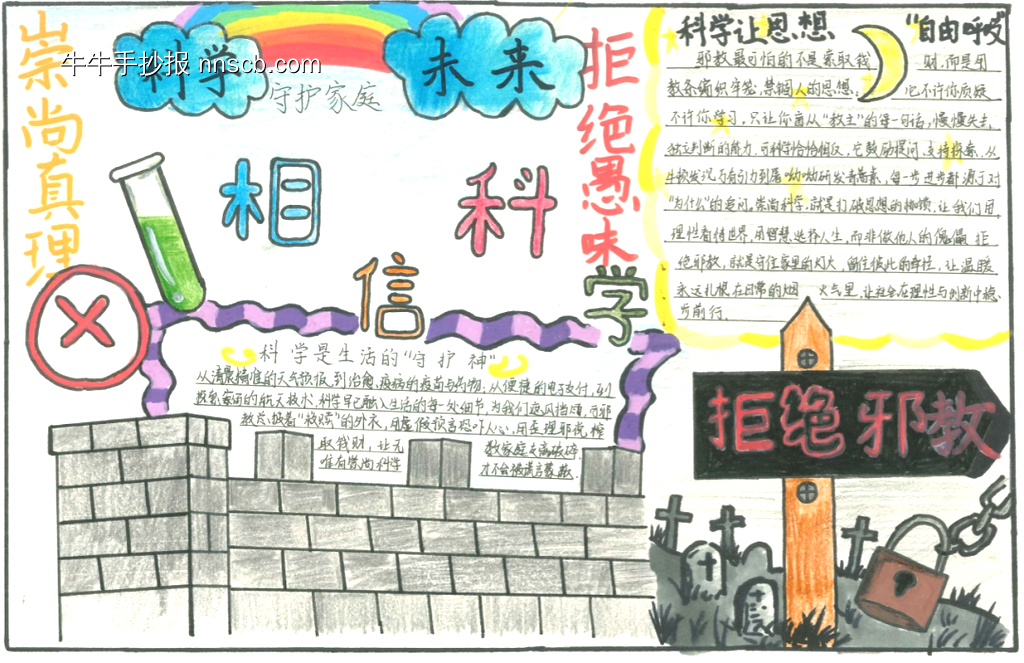 崇尚真理
牛牛手抄报 nnscb.com
科学
未来
守护家庭
拒绝愚昧
相
信
科
学
科学是生活的“守护神”
从清晨精准的天气预报,到治愈疾病的疫苗与药物;从便捷的电子支付,到
探索宇宙的航天技术,科学早已融入生活的每一处细节,为我们遮风挡雨,而邪
教总披着“救赎”的外衣,用虚假预言恐吓人心,用歪理邪说榨
取钱财,让无
数家庭支离破碎
唯有崇尚科学
才不会被谎言蒙蔽.
科学让思想
“自由呼吸”
邪教最可怕的不是索取钱
财,而是用
教条编织牢笼,禁锢人的思想:
它不许你质疑
不许你学习,只让你盲从“教主”的每一句话,慢慢失去
独立判断的能力.可科学恰恰相反,它鼓励提问、支持探索.从
牛顿发现万有引力到屠呦呦研发青蒿素,每一步进步都源于对
“为什么”的追问.崇尚科学,就是打破思想的枷锁,让我们用
理性看待世界,用智慧选择人生,而非做他人的傀儡.拒
绝邪教,就是守住家里的灯火,留住彼此的牵挂,让温暖
永远扎根在日常的烟
火气里,让社会在理性与判断中稳
步前行.
拒绝邪教